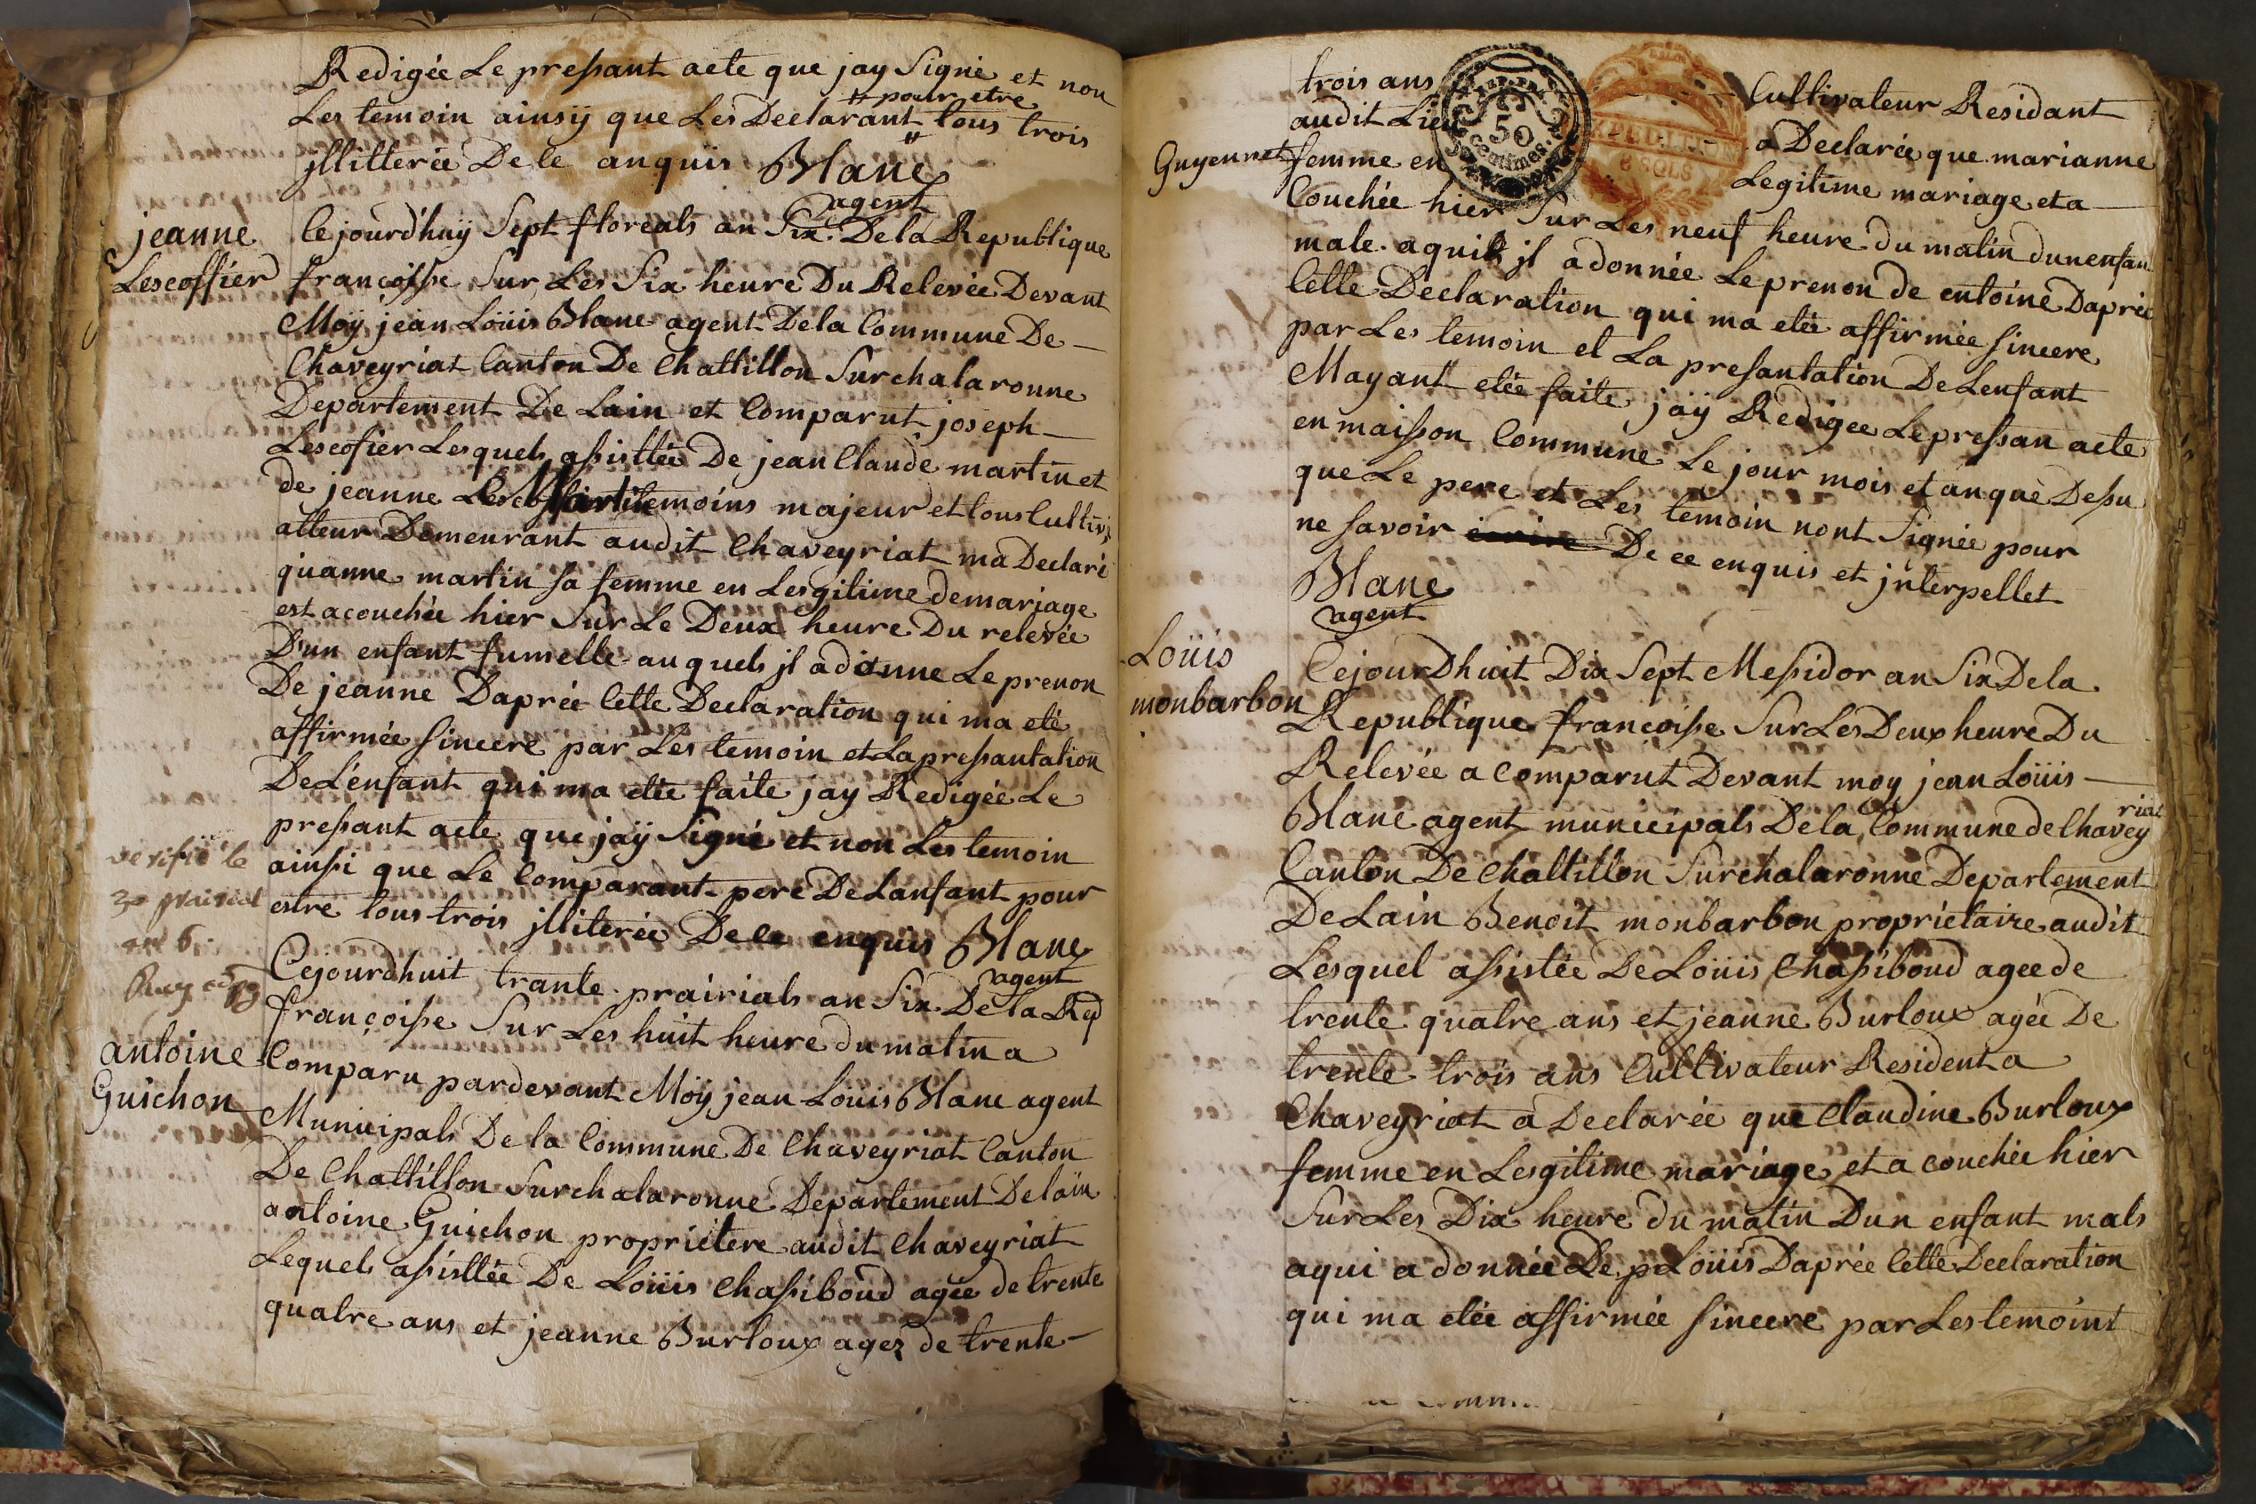 Redigée Le pressant acte que jay Signé et non
Les temoin ainsÿ que Les Declarant # pour etre tous trois
jllitterée De ce anquis Blanc
agent
jeanne
Lescoffier
Cejourd'huÿ Sept floreals an Six De la Republique
francoisse Sur Les Six heure Du Relevée Devant
Moÿ jean Loüis Blanc agent De la Commune De
Chaveyriat Canton De Chattillon Surchalaronne
Departement De Lain et Comparut joseph
Lescofier Lesquels assisttée De jean Claude martin et
de jeanne Martin temoins majeur et tous Cultiv
atteur Demeurant audit Chaveyriat ma Declaré
quanne martin sa femme en Lesgitime demariage
est acouchée hier Sur Le Deux heure Du relevée
D'un enfant fumelle auquels jl a donne Le prenon
De jeanne Daprée Cette Declaration qui ma eté
affirmée sincere par Les temoin et La pressantation
De Lenfant qui ma etée faite jay Redigée Le
pressant acte que jaÿ Signé et non Les temoin
ainssi que Le Comparant pere De Lanfant pour
estre tous trois jlliterée De ce enquis Blanc
agent
verifié le
30 prairial
an 6.
antoine
Guichon
Cejourdhuit trante prairials an Six De la Rep
françoisse Sur Les huit heure du matin a
Comparu pardevant Moÿ jean Louis Blanc agent
Municipals De la Commune De Chaveyriat Canton
De Chattillon Surchalaronne Departement De lain
antoine Guichon proprietere audit Chaveyriat
Lequels assisttée De Loüis Chassiboud agée de trente
quatre ans et jeanne Burloux agez de trente
trois ans Cultivateur Residant
audit Lieu a Declarée que marianne
Guyennet femme en Legitime mariage et a
Couchée hier Sur Les neuf heure du matin dun enfan
male aquil jl a donnée Le prenon de entoine Daprée
Cette Declaration qui ma etée affirmée sincere
par Les temoin et La presantation De Lenfant
Mayant etée faite jaÿ Redigee Le pressan acte
en maisson Commune Le jour mois et an que Dessu
que Le pere et Les temoin nont Signée pour
ne savoir ecrire De ce enquis et jnterpellet
Blanc
agent
50
Centimes.
8 SOLS
Loüis
monbarbon
CejourDhuit Dix Sept Messidor an Six De la
Republique francoisse Sur Les Deux heure Du
Relevée a comparut Devant moy jean Loüis
Blanc agent municipals De la Commune de Chaveyriat
Canton De Chattillon Surchalaronne Departement
De Lain Benoit monbarbon proprietaire audit
Lesquel assistée De Loüis Chassiboud agee de
trente quatre ans et jeanne Burloux agée De
trente trois ans Cultivateur Resident a
Chaveyriat a Declarée que Claudine Burloux
femme en Lesgitime mariage et a couchée hier
Sur Les Dix heure du matin Dun enfant mals
aqui a donnée Le p Loüis Daprée Cette Declaration
qui ma etée affirmée sincere par Les temoint